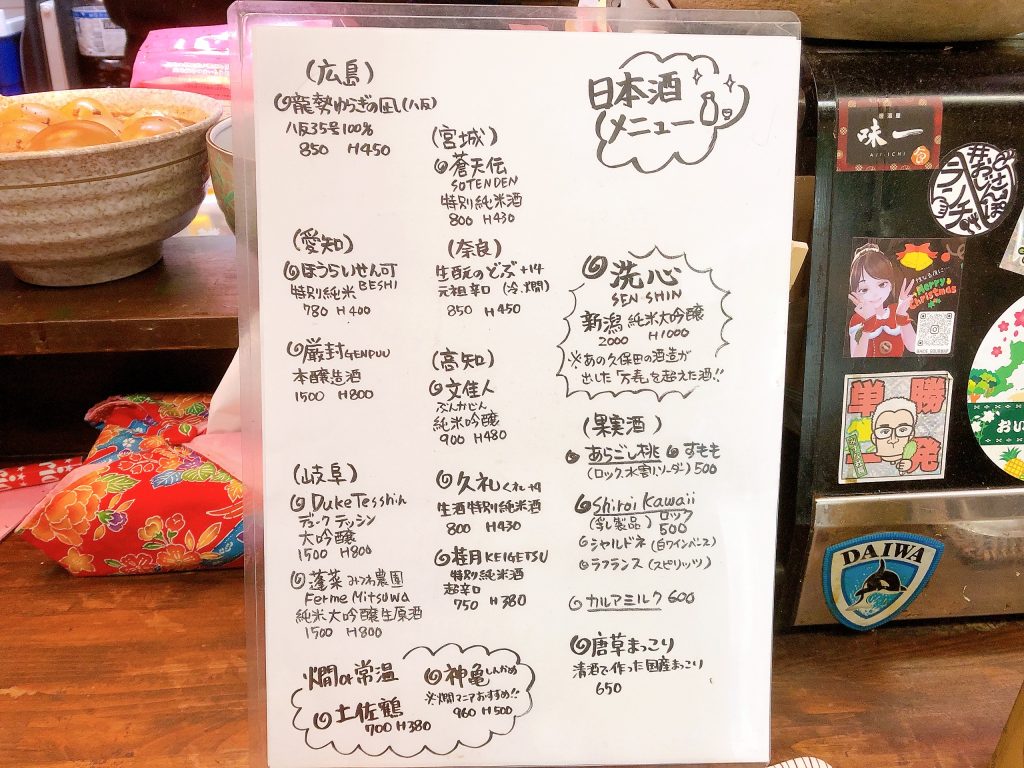 日本酒
メニュー
(広島)
龍勢ゆらぎの凪(八反)
八反35号100%
850 H450
(宮城)
蒼天伝
SOTENDEN
特別純米酒
800 H430
(愛知)
ほうらいせん可
特別純米 BESHI
780 H400
厳封GENPUU
本醸造生酒
1500 H800
(奈良)
生酛のどぶ+14
元祖辛口 (冷、燗)
850 H450
(高知)
文佳人
ぶんかじん
純米吟醸
900 H480
久礼 くれ+9
生酒特別純米酒
800 H430
桂月KEIGETSU
特別純米酒
超辛口
750 H380
(岐阜)
Duke Tesshin
デューク テッシン
大吟醸
1500 H800
蓬莱 みつわ農園
Ferme Mitsuwa
純米大吟醸生原酒
1500 H800
燗or常温
土佐鶴
700 H380
神亀しんかめ
※燗マニアおすすめ!!
960 H500
洗心
SENSHIN
新潟 純米大吟醸
2000 H1000
※あの久保田の酒造が
出した「万寿」を超えた酒!!
(果実酒)
あらごし桃 すもも
(ロック、水割、ソーダ) 500
Shiroi Kawaii
(乳製品) ロック
500
シャルドネ (白ワインベース)
ラフランス (スピリッツ)
カルアミルク 600
唐草まっこり
清酒で作った国産まっこり
650
居酒屋
味一
AJI-ICHI
Merry
Christmas
単勝
一発
DAIWA
おい